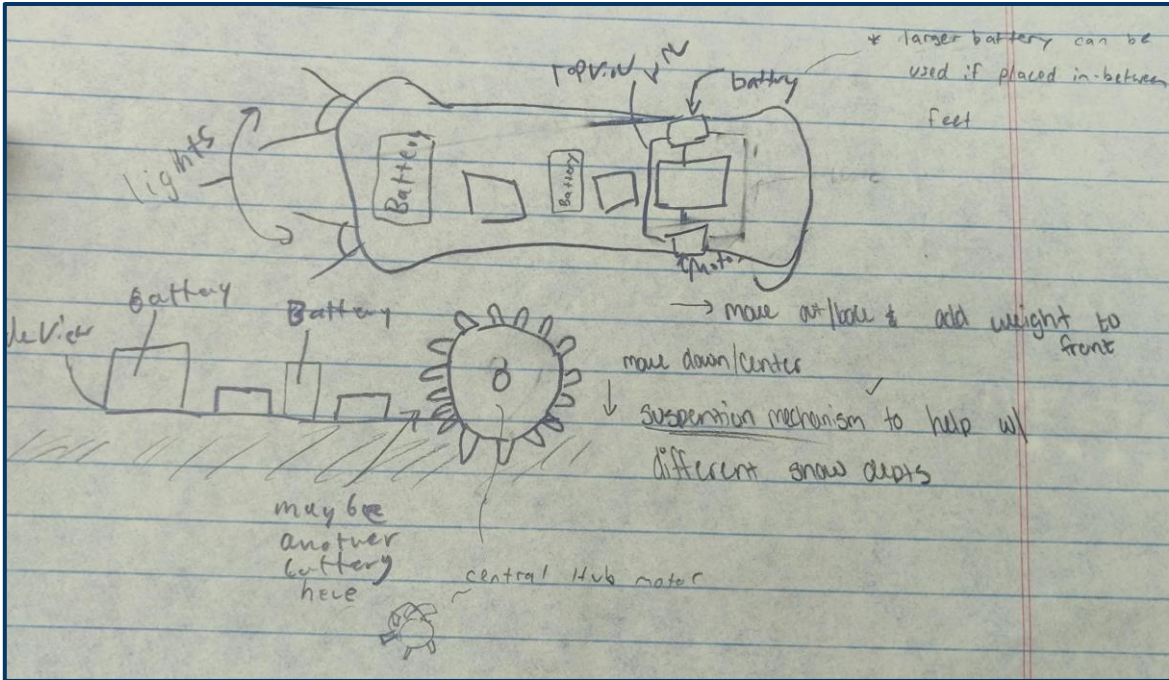 * larger battery can be
used if placed in-between
feet
Top View
battery
lights
Battery
Battery
motor
Battery
Battery
de View
→ move out/back & add weight to
front
move down/center
suspention mechanism to help w/
different snow depts
maybe
another
battery
here
central Hub motor